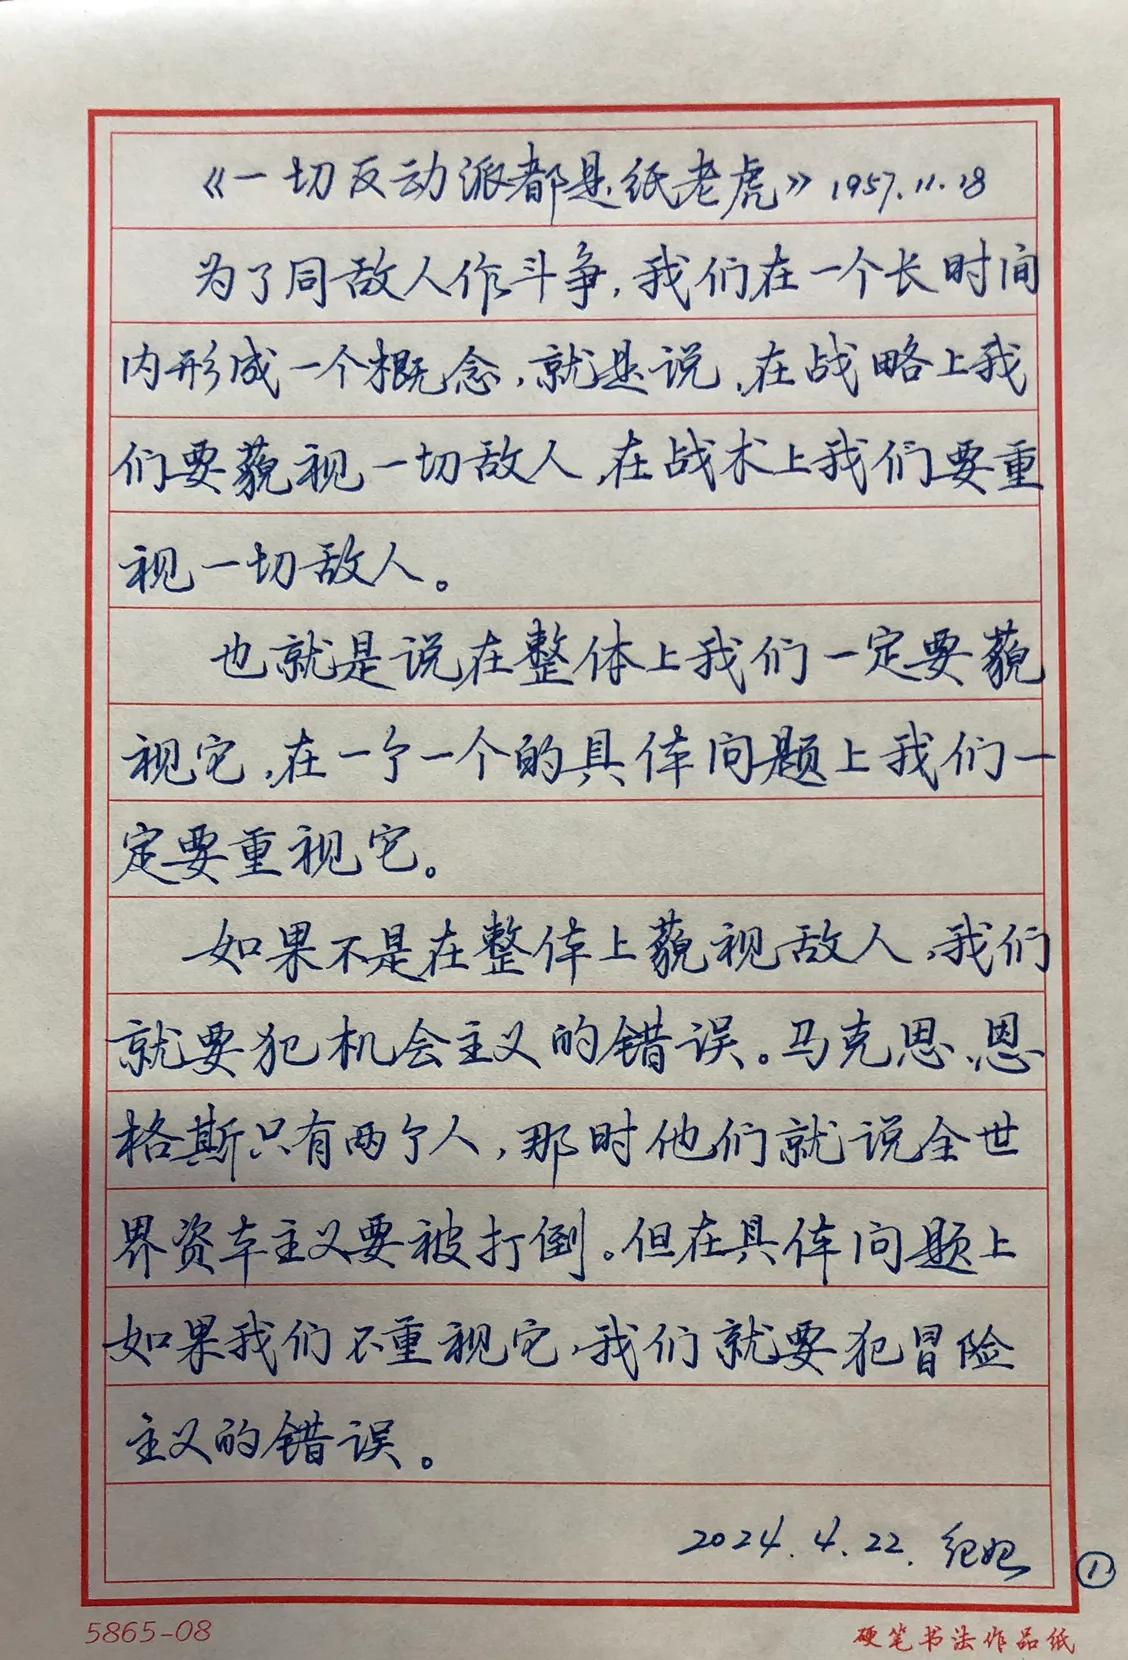 《一切反动派都是纸老虎》1957.11.18
为了同敌人作斗争，我们在一个长时间
内形成一个概念，就是说，在战略上我
们要藐视一切敌人，在战术上我们要重
视一切敌人。
也就是说在整体上我们一定要藐
视它，在一个一个的具体问题上我们一
定要重视它。
如果不是在整体上藐视敌人，我们
就要犯机会主义的错误。马克思、恩
格斯只有两个人，那时他们就说全世
界资本主义要被打倒。但在具体问题上
如果我们不重视它，我们就要犯冒险
主义的错误。
2024.4.22.
1
5865-08
硬笔书法作品纸